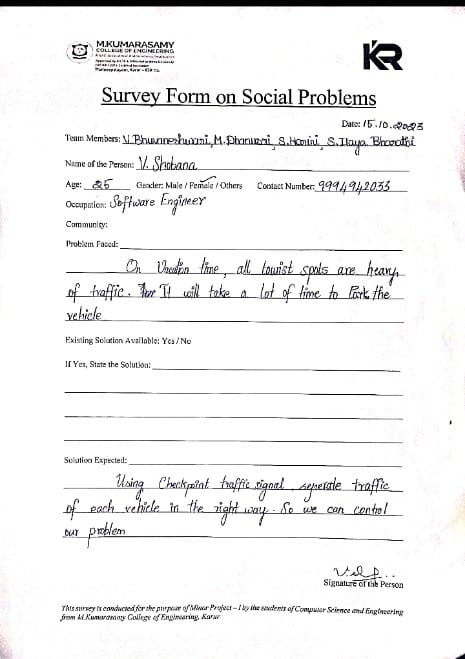 M.KUMARASAMY
COLLEGE OF ENGINEERING
Thalavapalayam, Karur - 639 113.
KR
Survey Form on Social Problems
Date: 15.10.2023
Team Members: V. Bhuvaneshwari, M. Dharvani, S. Harini, S. Ilaya Bharathi
Name of the Person: V. Shobana
Age: 25 Gender: Male / Female / Others Contact Number: 9994942033
Occupation: Software Engineer
Community:
Problem Faced:
On Vacation time, all tourist spots are heavy
of traffic. It will take a lot of time to Park the
vehicle
Existing Solution Available: Yes / No
If Yes, State the Solution:
Solution Expected:
Using Checkpoint traffic signal, seperate traffic
of each vehicle in the right way. So we can control
our problem
Signature of the Person
This survey is conducted for the purpose of Minor Project – I by the students of Computer Science and Engineering
from M.Kumarasamy College of Engineering, Karur